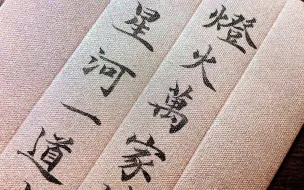 燈火萬家
星河一道